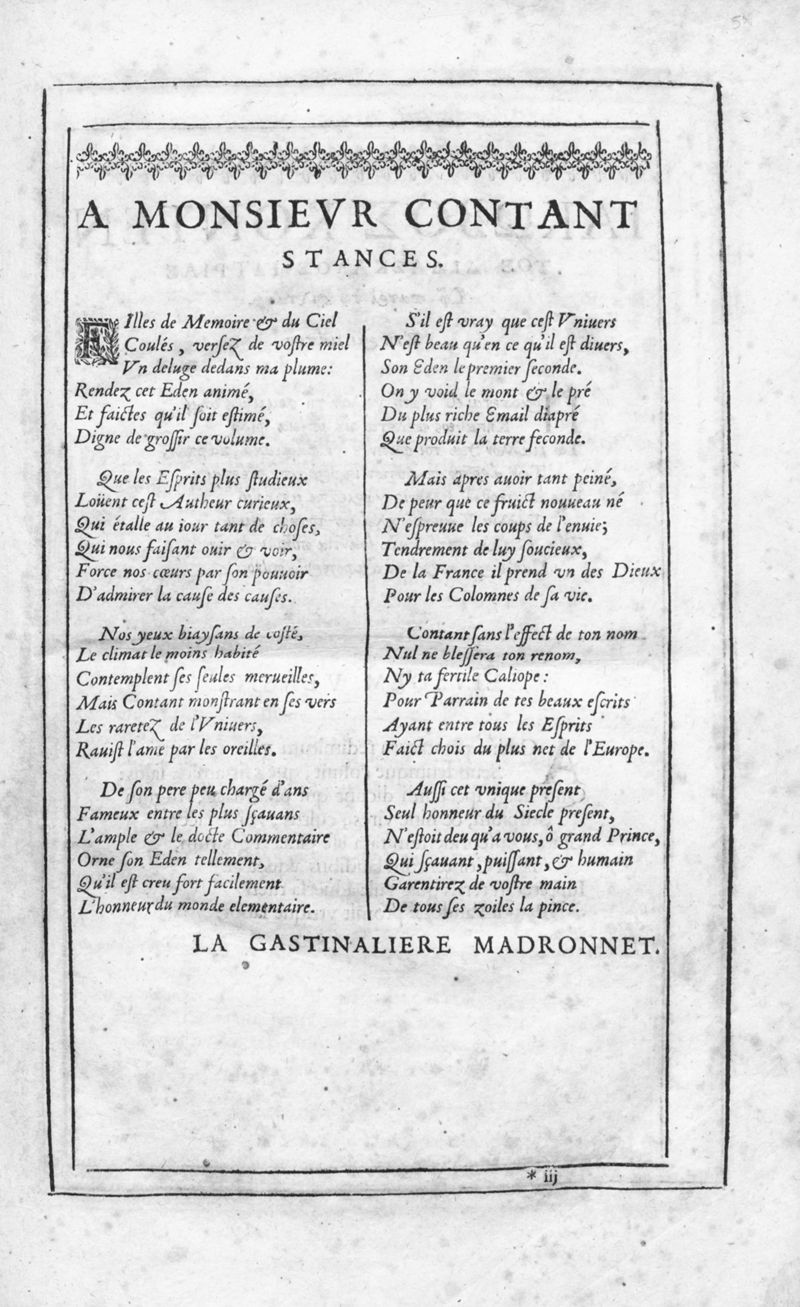 A MONSIEVR CONTANT
STANCES.
FIlles de Memoire & du Ciel
Coulés, verſez de voſtre miel
Vn deluge dedans ma plume:
Rendez cet Eden animé,
Et faictes qu'il ſoit eſtimé,
Digne de groſſir ce volume.
Que les Eſprits plus ſtudieux
Loüent ceſt Autheur curieux,
Qui étalle au iour tant de choſes,
Qui nous faiſant ouir & voir,
Force nos cœurs par ſon pouuoir
D'admirer la cauſe des cauſes.
Nos yeux biayſans de coſté,
Le climat le moins habité
Contemplent ſes ſeules merueilles,
Mais Contant monſtrant en ſes vers
Les raretez de l'Vniuers,
Rauiſt l'ame par les oreilles.
De ſon pere peu chargé d'ans
Fameux entre les plus ſçauans
L'ample & le docte Commentaire
Orne ſon Eden tellement,
Qu'il eſt creu fort facilement
L'honneur du monde elementaire.
S'il eſt vray que ceſt Vniuers
N'eſt beau qu'en ce qu'il eſt diuers,
Son Eden le premier ſeconde.
On y void le mont & le pré
Du plus riche Email diapré
Que produit la terre feconde.
Mais apres auoir tant peiné,
De peur que ce fruict nouueau né
N'eſpreuue les coups de l'enuie;
Tendrement de luy ſoucieux,
De la France il prend vn des Dieux
Pour les Colomnes de ſa vie.
Contant ſans l'effect de ton nom
Nul ne bleſſera ton renom,
Ny ta fertile Caliope:
Pour Parrain de tes beaux eſcrits
Ayant entre tous les Eſprits
Faict chois du plus net de l'Europe.
Auſſi cet vnique preſent
Seul honneur du Siecle preſent,
N'eſtoit deu qu'a vous, ô grand Prince,
Qui ſçauant, puiſſant, & humain
Garentirez de voſtre main
De tous ſes zoiles la pince.
LA GASTINALIERE MADRONNET.
* iij